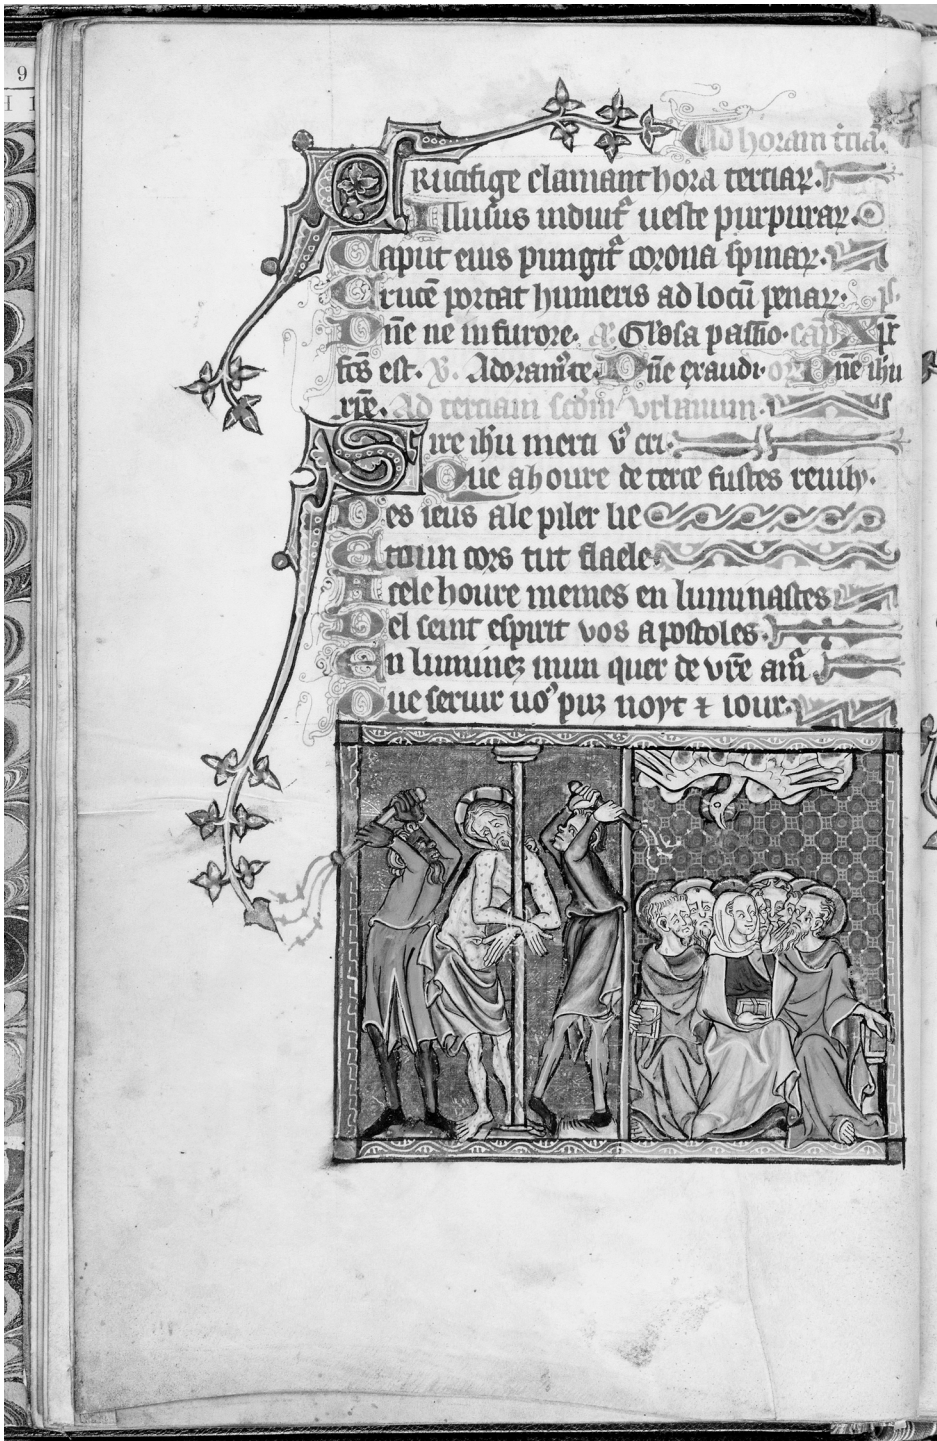 9
Ad horam t͛cia᷒.
CRucifige clamant hora terciaꝝ.
Illusus induit᷒ ueste purpuraꝝ.
Caput eius pungit᷒ corona spinaꝝ.
Crucē portat humeris ad locū penaꝝ. ps.
Dn̄e ne in furore. a͛. Gl'osa passio. cap Xp̄c
fc̄s est. V. Adoram᷒ te. Dn̄e exaudi. or Dn̄e ihu
xp̄e. Ad terciam scdm vrbanum.
Sire ih'u merci v᷒ cri.
Que a houre de terce fustes reuily.
Des ieus ale piler lie
E toun cors tut flaele.
A cele houre memes en luminastes
Del seint espirit vos apostoles.
En luminez mun quer de vr̄e am᷒
Que seruir uo᷒ puz noyt ⁊ iour.